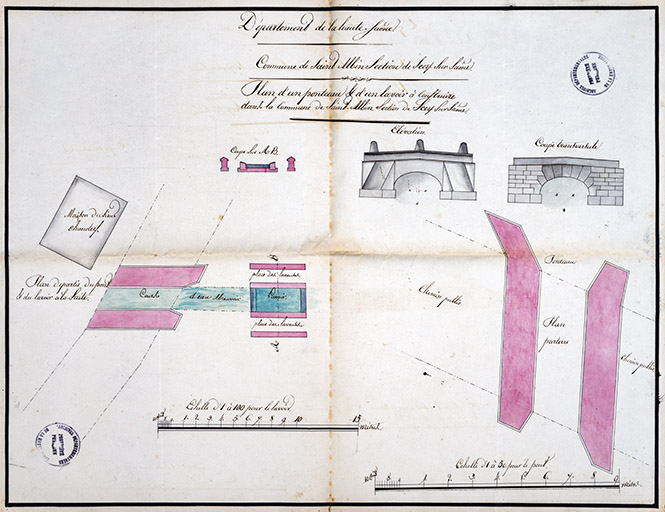 Département de la haute-Saône
Commune de Saint Albin Section de Scey Sur Saône
Plan d'un ponteau & d'un lavoir à construire
dans la commune de Saint Albin Section de Scey Sur Saône
Elévation
Coupe transversale
Coupe Sur A B
Maison du Sieur
Plan de partie du pont
& du lavoir à la Suite
Cours
d'eau
place des laveuses
Bassin
place des laveuses
B
A
Chemin public
Ponteau
Plan
Chemin public
Echelle d'1 à 100 pour le lavoir
1 2 3 4 5 6 7 8 9 10 15 mètres
Echelle d'1 à 50 pour le pont
1 2 3 4 5 6 7 8 9 mètres
ARCHIVES DEPARTEMENTALES
ARCHIVES DEPARTEMENTALES